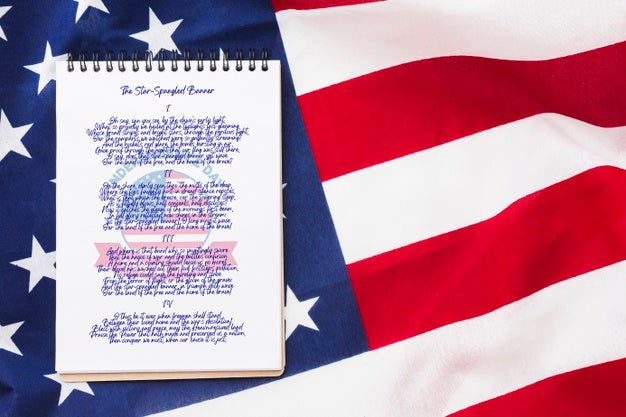 The Star-Spangled Banner
I
Oh say, can you see, by the dawn's early light,
What so proudly we hailed at the twilight's last gleaming,
Whose broad stripes and bright stars, through the perilous fight,
O'er the ramparts we watched, were so gallantly streaming?
And the rockets' red glare, the bombs bursting in air,
Gave proof through the night that our flag was still there,
O say, does that star-spangled banner yet wave
O'er the land of the free, and the home of the brave?
II
On the shore, dimly seen thro' the mists of the deep,
Where the foe's haughty host in dread silence reposes,
What is that which the breeze, o'er the towering steep,
As it fitfully blows, half conceals, half discloses?
Now it catches the gleam of the morning's first beam,
In full glory reflected now shines in the stream
'Tis the star-spangled banner! O long may it wave
O'er the land of the free and the home of the brave!
III
And where is that band who so vauntingly swore
That the havoc of war and the battle's confusion
A home and a country should leave us no more?
Their blood has washed out their foul footsteps' pollution.
No refuge could save the hireling and slave
From the terror of flight, or the gloom of the grave,
And the star-spangled banner, in triumph doth wave
O'er the land of the free and the home of the brave!
IV
O thus be it ever when freeman shall stand
Between their loved home and the war's desolation!
Blest with victory and peace, may the heaven-rescued land
Praise the Power that hath made and preserved us a nation.
Then conquer we must, when our cause it is just,